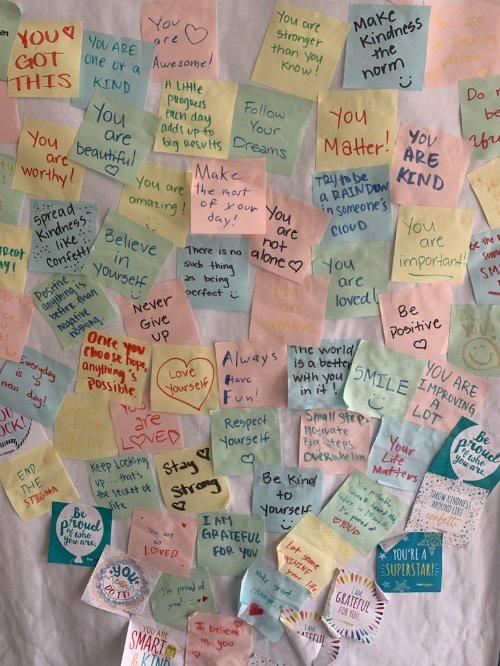 YOU
GOT
THIS
YOU ARE
one of a
KIND
You
are
Awesome!
You are
stronger
than you
know!
Make
Kindness
the
norm
You are
an amazing
person
You
are
worthy!
You
are
beautiful
A little
progress
each day
adds up to
big results
Follow
Your
Dreams
You
Matter!
YOU
ARE
KIND
Do n
be
You are
amazing!
Make
the most
of your
day!
Try to be
a RAINBOW
in someone's
CLOUD
Spread
Kindness
like
Confetti
Believe
in
yourself
There is no
such thing
as being
perfect
You
are
not
alone
You
are
loved!
You
are
important!
Positive
anything is
better than
negative
nothing
Never
Give
up
You are
creative
Be
Positive
Everyday
is a
new day!
Once you
choose hope,
anything's
possible.
Love
Yourself
Always
Have
Fun!
The world
is a better
with you
in it!
SMILE
YOU ARE
IMPROVING
A
LOT
choose
to be
HAPPY
YOU
are
LOVED
Respect
Yourself
Small steps
motivate
Big steps
overwhelm
Your
Life
Matters
Be
proud
of who
you are.
END
THE
STIGMA
Keep looking
up... that's
the secret of
life
Stay
Strong
Be Kind
to
yourself
THROW KINDNESS
AROUND LIKE
confetti
Be
proud
of who
you are.
You are
so
LOVED
I AM
GRATEFUL
FOR YOU
I'm proud of
YOU!
YOU'RE A
SUPERSTAR!
you
can
DO IT!
I'm proud of
you!
Let some
SUNSHINE in
your life
Make great
change
I AM
GRATEFUL
FOR YOU.
YOU ARE
SMART
& KIND
I believe
in you
GRATEFUL